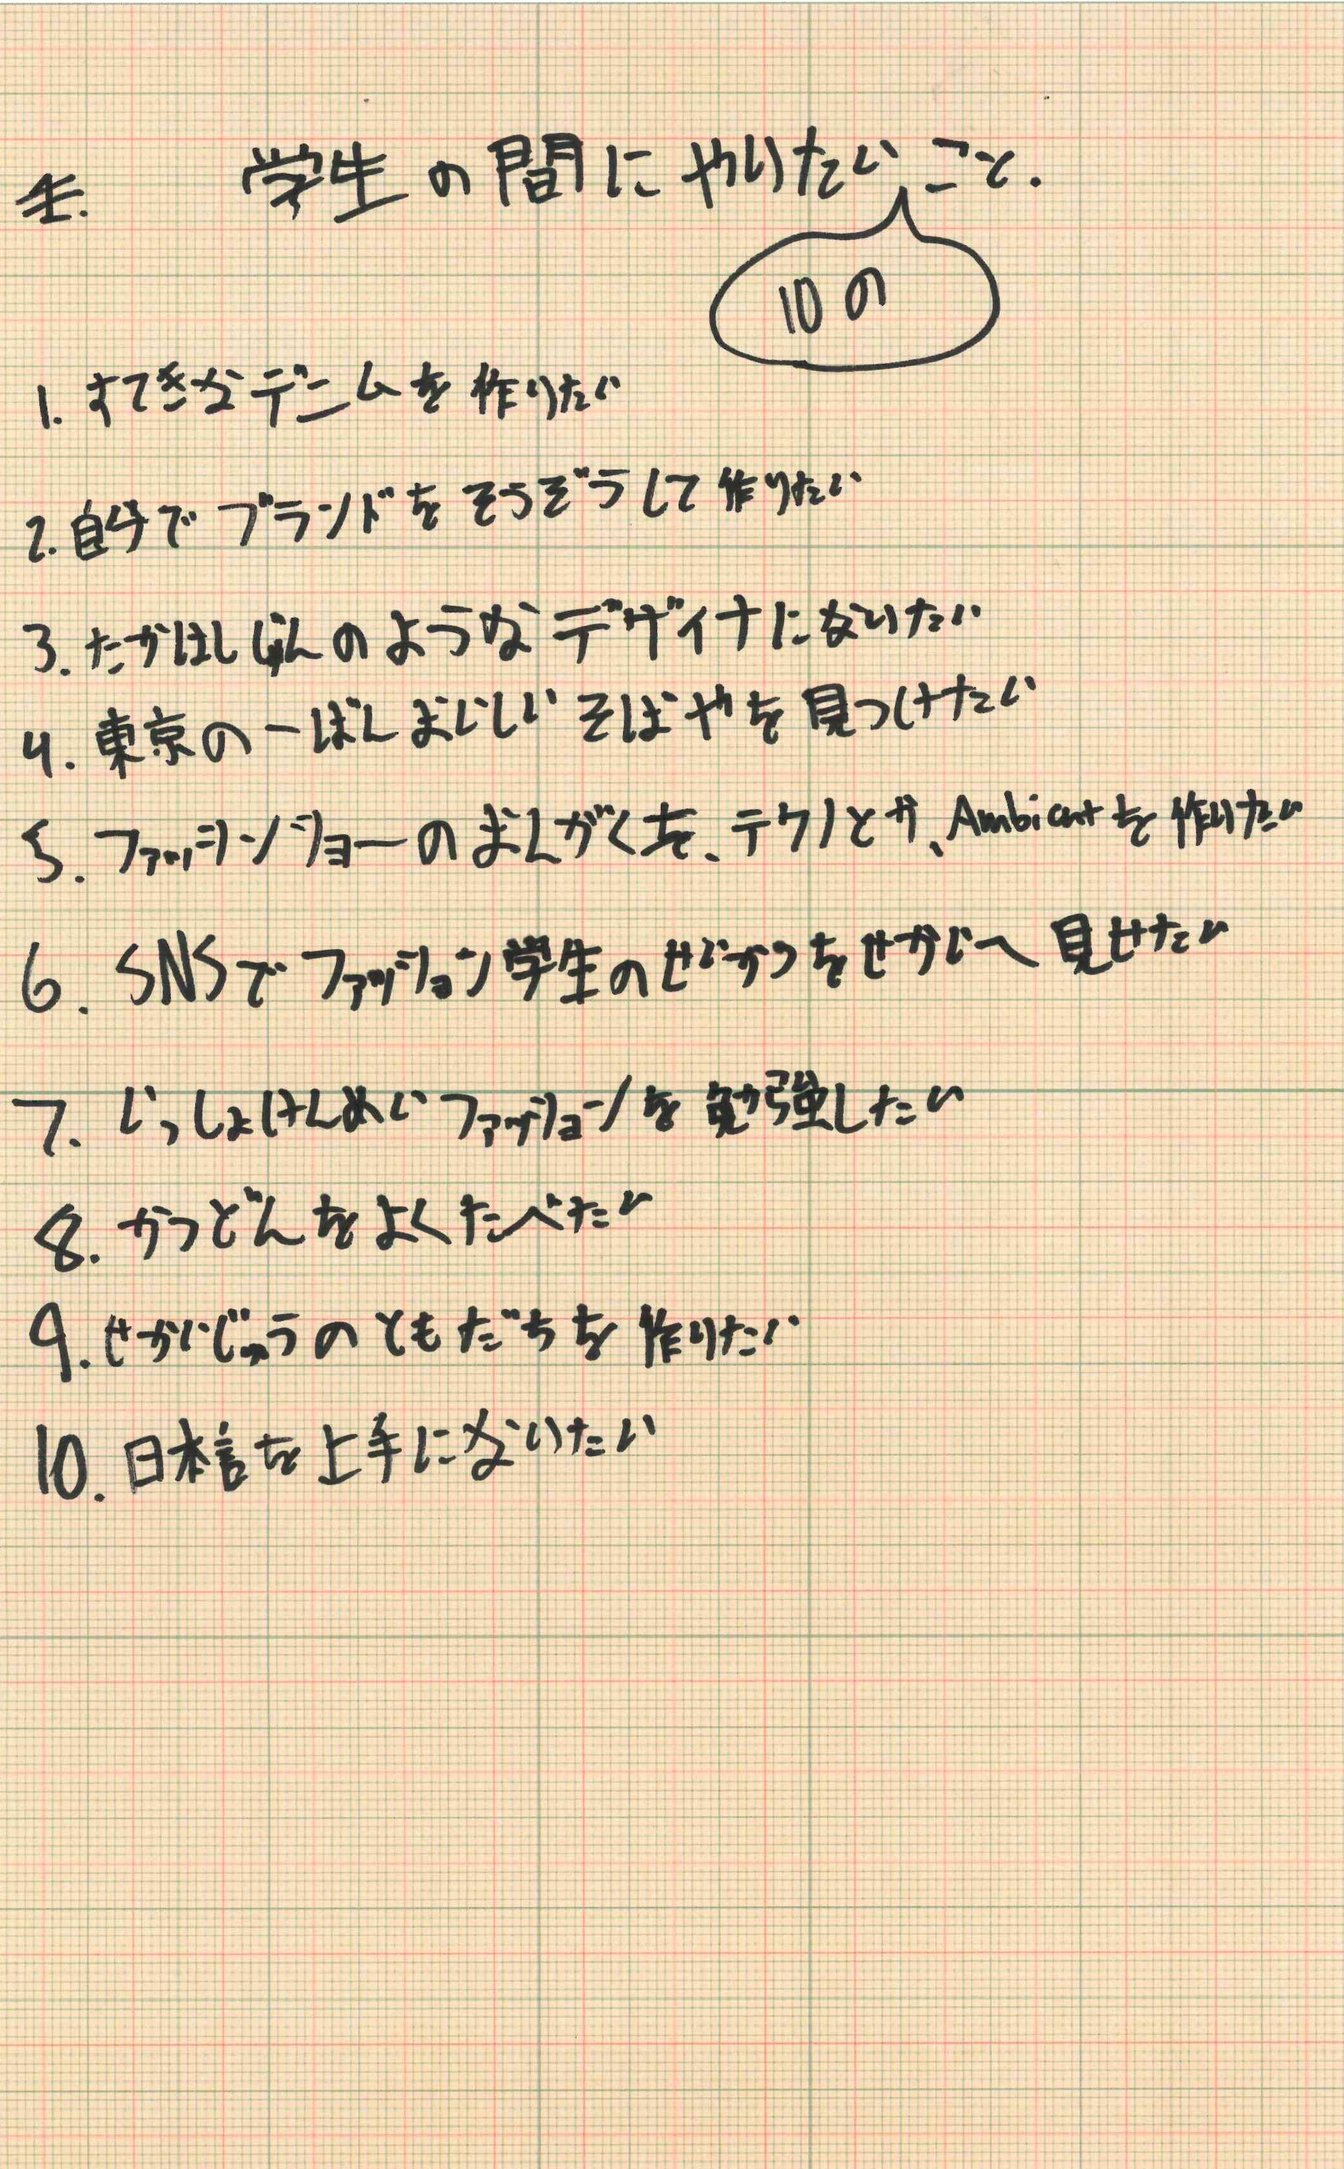 学生の間にやりたいこと.
10の
1. すてきなデニムを作りたい
2. 自分でブランドをそうぞうして作りたい
3. たかはしじゅんのようなデザイナになりたい
4. 東京の一ばんおいしいそばやを見つけたい
5. ファッションショーのおんがくを、テクノとか、Ambientを作りたい
6. SNSでファッション学生のせいかつをせかいへ見せたい
7. いっしょけんめいファッションを勉強したい
8. かつどんをよくたべたい
9. せかいじゅうのともだちを作りたい
10. 日本言を上手になりたい